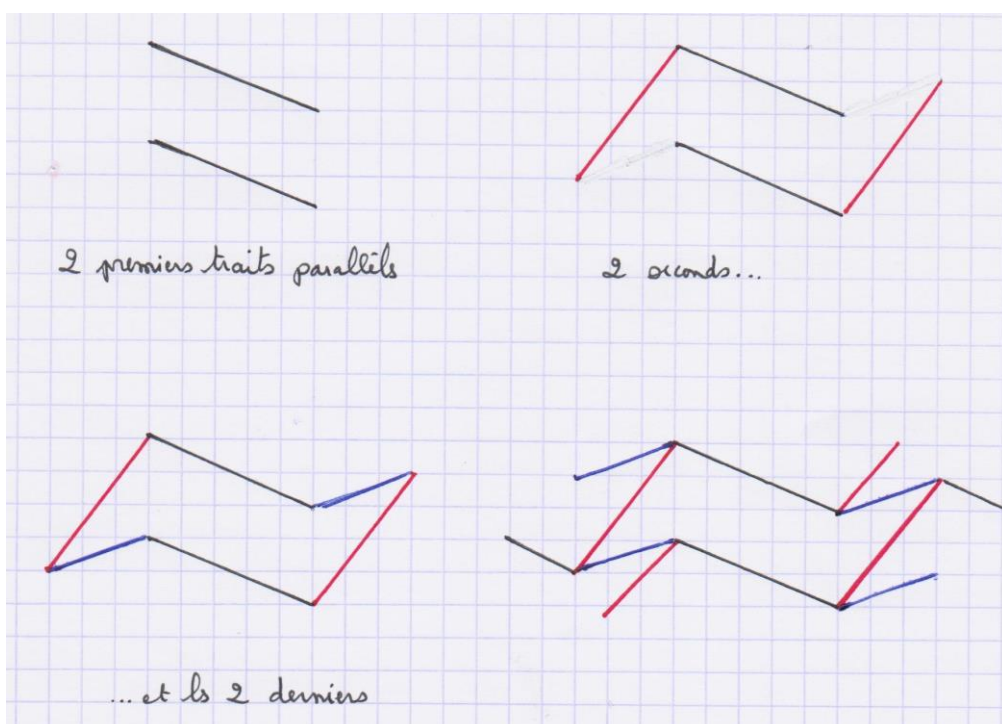 2 premiers traits parallèls
2 seconds...
...et ls 2 derniers